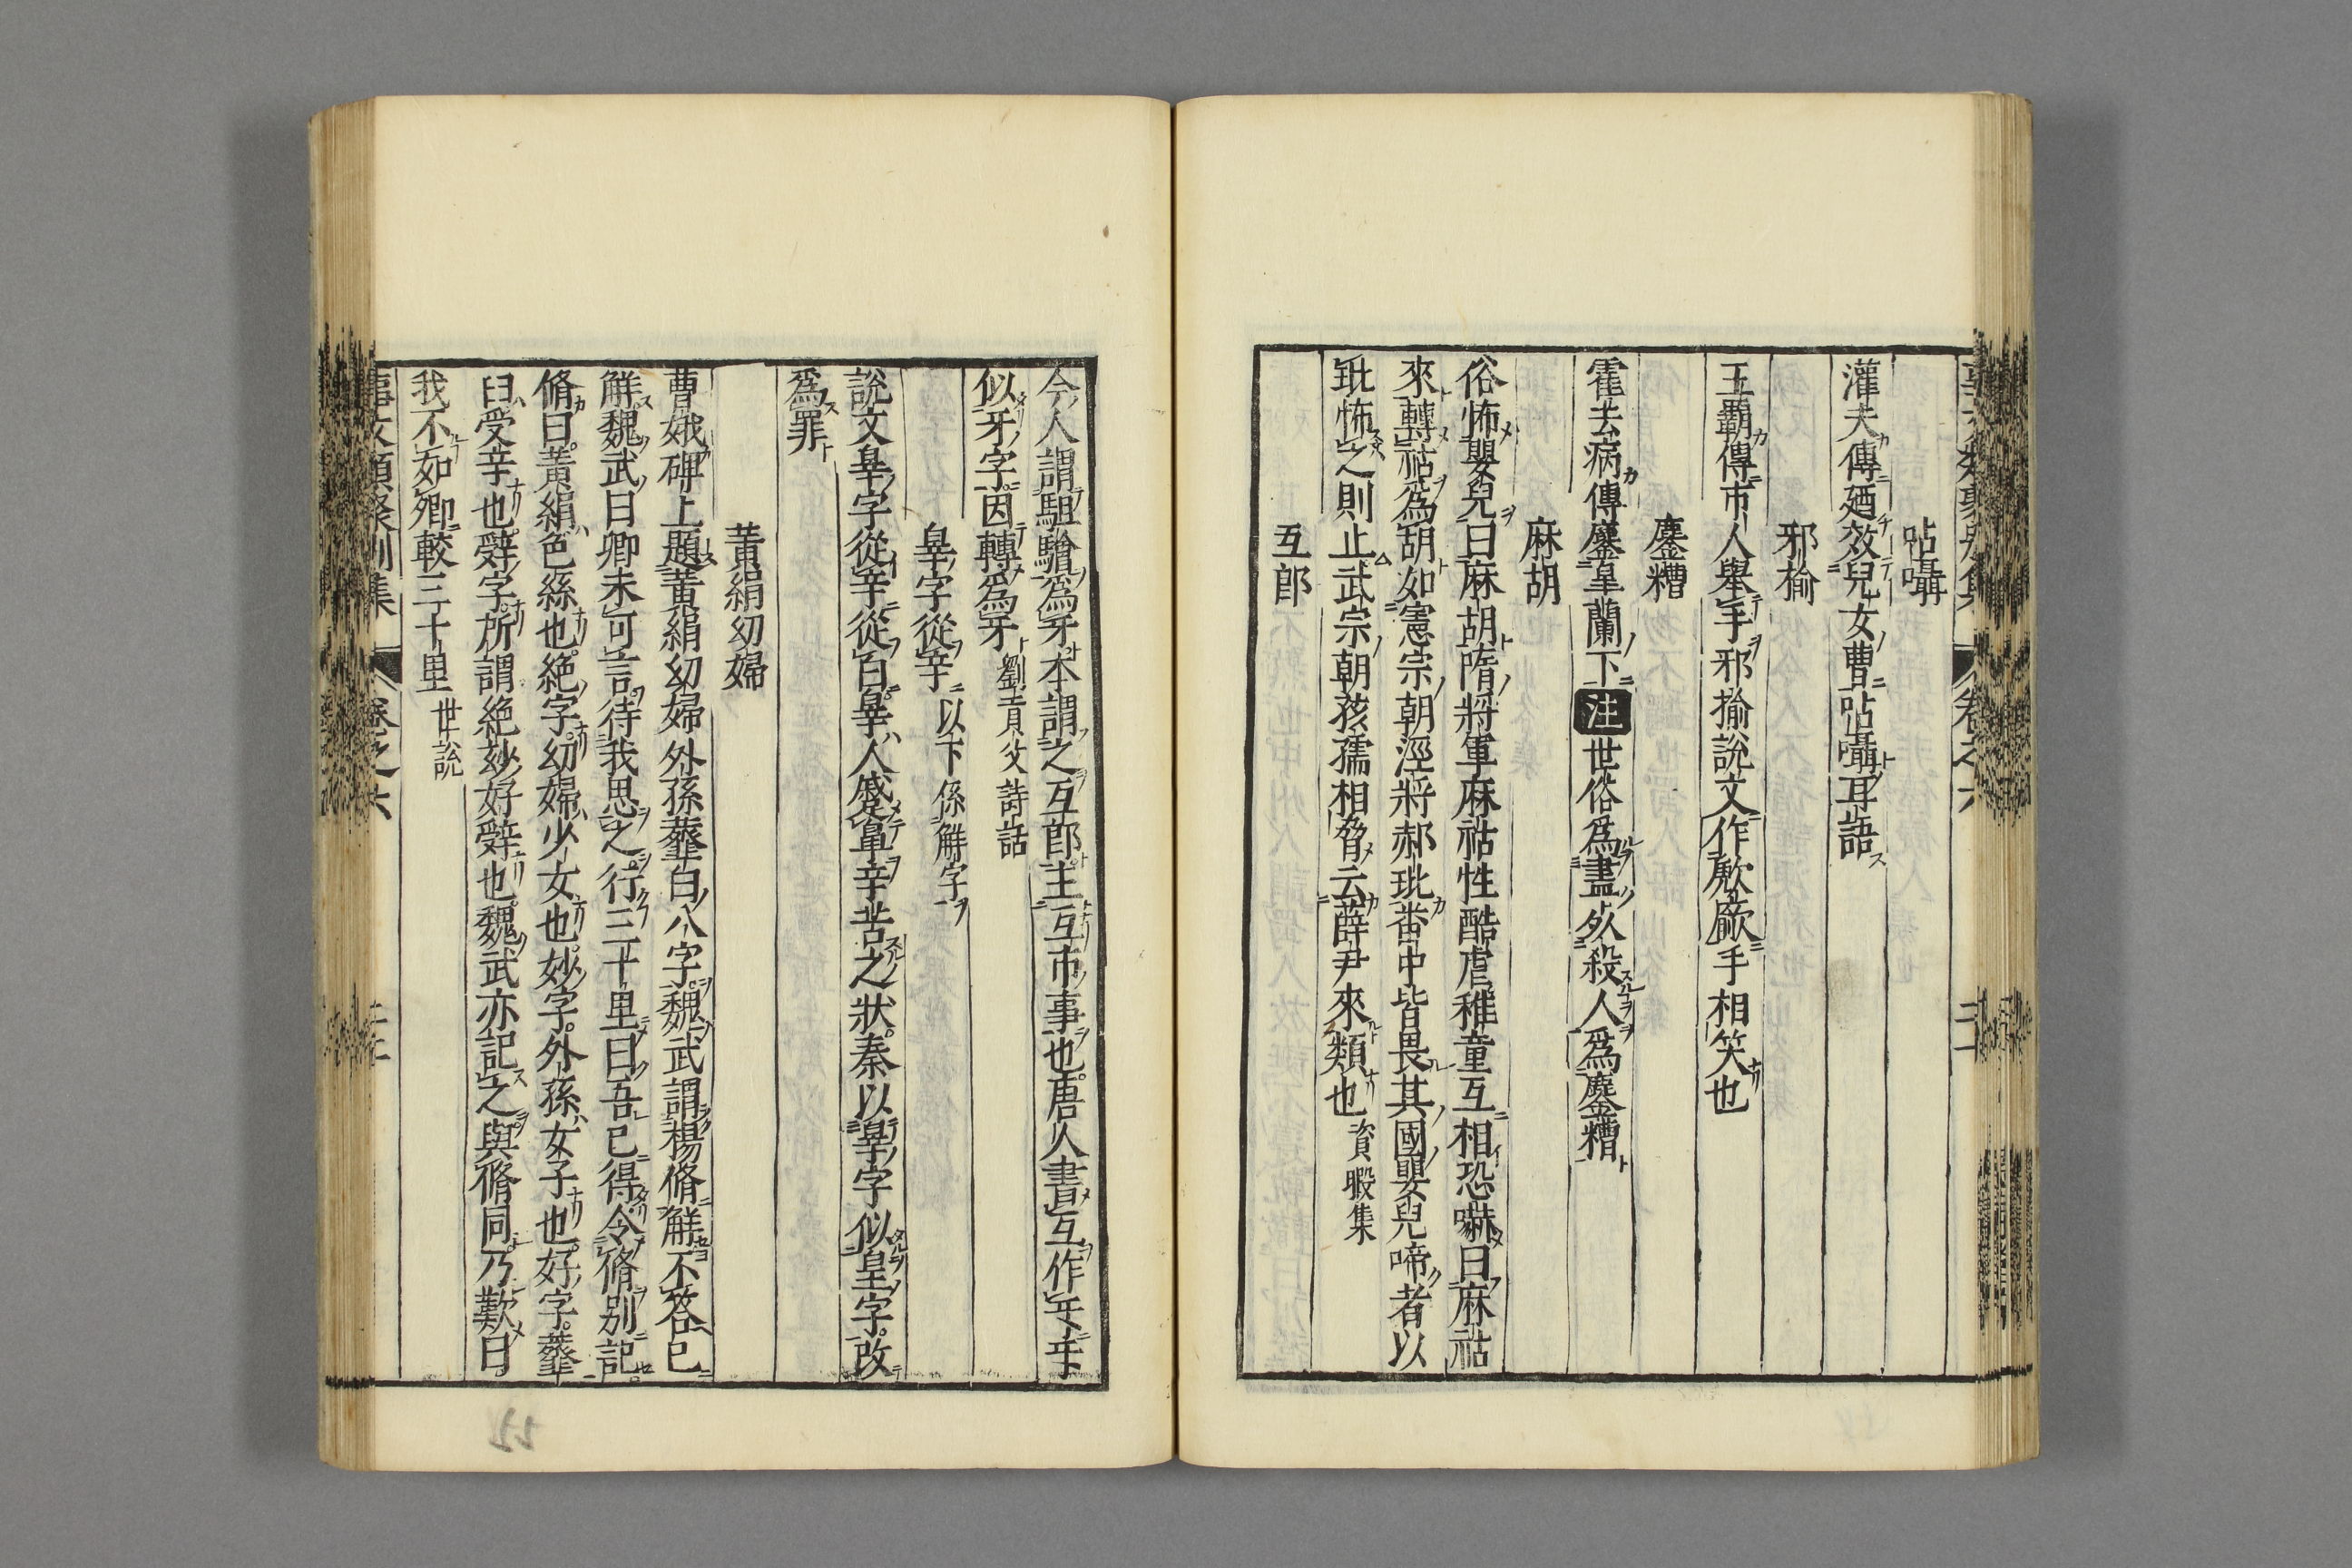 呫囁
灌夫傳廼效兒女曹呫囁耳語
邪揄
王霸傳市人舉手邪揄說文作歋廠手相笑也
鏖糟
霍去病傳鏖皐蘭下注世俗爲盡死殺人爲鏖糟
麻胡
俗怖嬰兒曰麻胡隋將軍麻祜性酷虐稚童互相恐嚇曰麻祜
來轉祜爲胡如憲宗朝涇將郝玼蕃中皆畏其國嬰兒啼者以
玼怖之則止武宗朝孩孺相脅云薛尹來類也 資暇集
互郎
今人謂駔驓爲牙本謂之互郎主互市事也唐人書互作㸦㸦
似牙字因轉爲牙 劉貢父詩話
辠字從辛 以下係解字
說文辠字從辛從自辠人蹙鼻辛苦之狀秦以辠字似皇字改
爲罪
黃絹幼婦
曹娥碑上題黃絹幼婦外孫虀臼八字魏武謂楊脩解不答已
解魏武曰卿未可言待我思之行三十里曰吾已得令脩別記
脩曰黃絹色絲也絶字幼婦少女也妙字外孫女子也好字虀
臼受辛也辤字所謂絶玅好辤也魏武亦記之與脩同乃歎曰
我不如卿較三十里 世說
事文類聚別集 卷之六